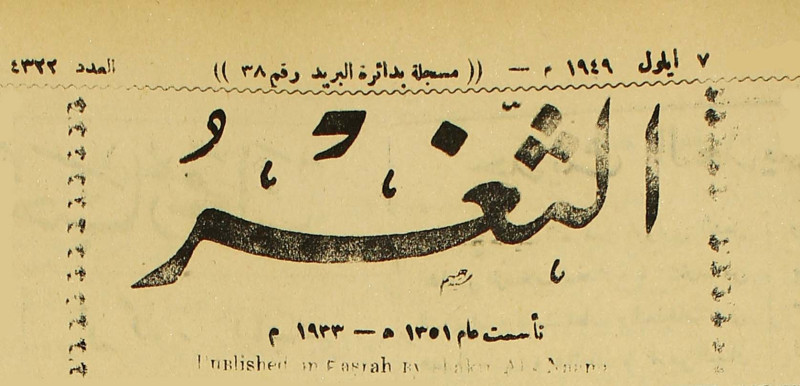 ٧ ايلول ١٩٤٩ م — (( مسجلة بدائرة البريد رقم ٣٨ )) العدد ٤٣٢٢
الثغر
تأسست عام ١٣٥١ ه — ١٩٣٣ م
Published in Basrah By